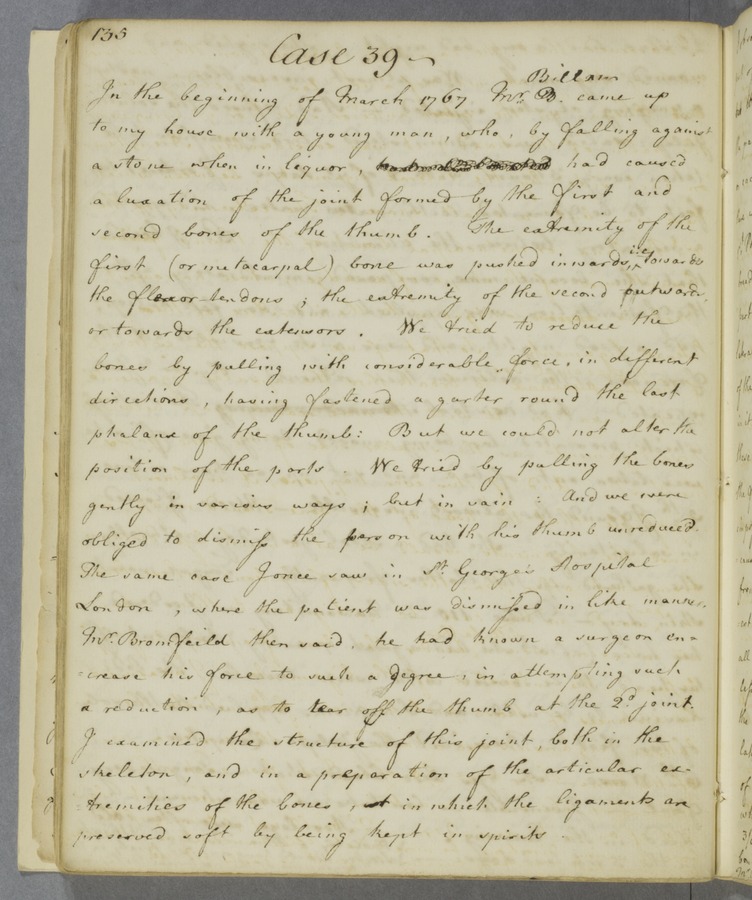 135
Case 39
Billam
In the beginning of March 1767 Mr. B. came up
to my house with a young man, who, by falling against
a stone when in liquor, had caused
a luxation of the joint formed by the first and
second bones of the thumb. The extremity of the
first (or metacarpal) bone was pushed inwards, i.e. towards
the flexor-tendons; the extremity of the second outwards,
or towards the extensors. We tried to reduce the
bones by pulling with considerable force, in different
directions, having fastened a garter round the last
phalanx of the thumb: But we could not alter the
position of the parts. We tried by pulling the bones
gently in various ways; but in vain: And we were
obliged to dismiss the person with his thumb unreduced.
The same case I once saw in St. George's Hospital
London, where the patient was dismissed in like manner.
Mr. Bromfeild then said, he had known a surgeon en=
=crease his force to such a degree, in attempting such
a reduction, as to tear off the thumb at the 2d. joint.
I examined the structure of this joint, both in the
skeleton, and in a preparation of the articular ex=
=tremities of the bones, in which the ligaments are
preserved soft by being kept in spirits.